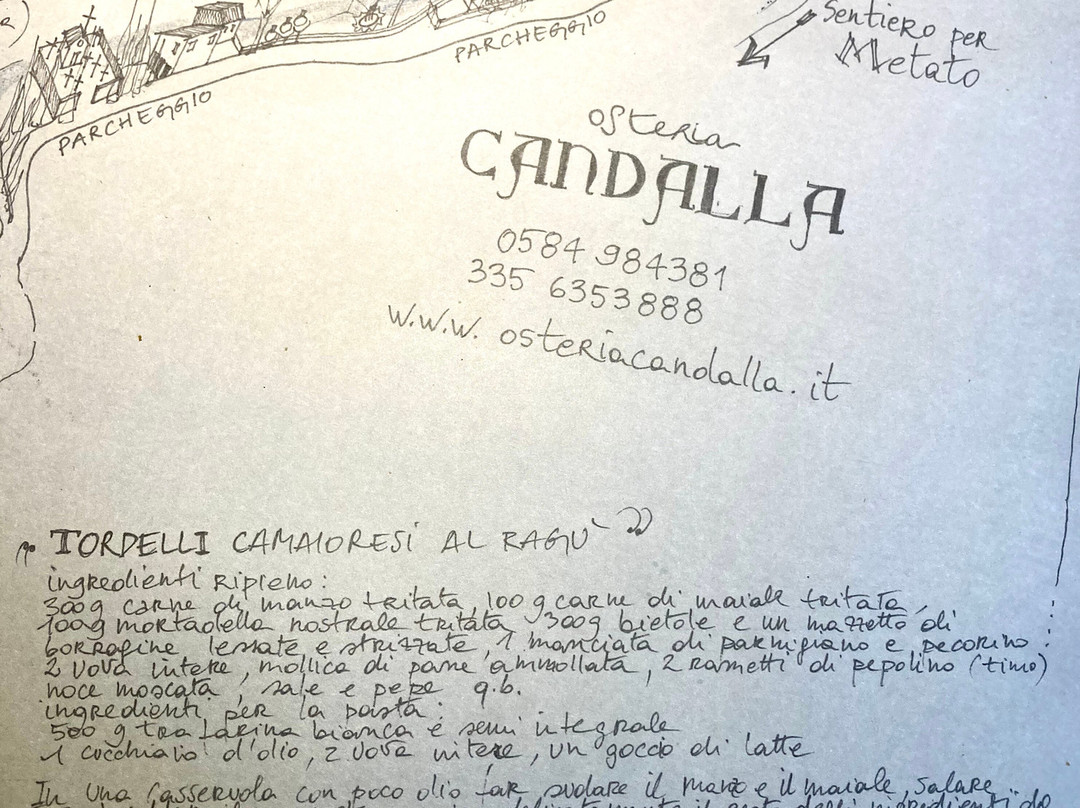 PARCHEGGIO
PARCHEGGIO
Sentiero per
Metato
osteria
CANDALLA
0584 984381
335 6353888
w.w.w. osteriacandalla.it
TORDELLI CAMAIORESI AL RAGÙ
ingredienti Ripieno:
300g carne di manzo tritata, 100 g carne di maiale tritata,
100g mortadella nostrale tritata 300g bietole e un mazzetto di
borragine lessate e strizzate, 1 manciata di parmigiano e pecorino
2 uova intere, mollica di pane ammollata, 2 rametti di pepolino (timo)
noce moscata, sale e pepe q.b.
ingredienti per la pasta:
500 g tra farina bianca e semi integrale
1 cucchiaio d'olio, 2 uova intere, un goccio di latte
In una casseruola con poco olio far sudare il manzo e il maiale, salare
il resto degli ingredienti